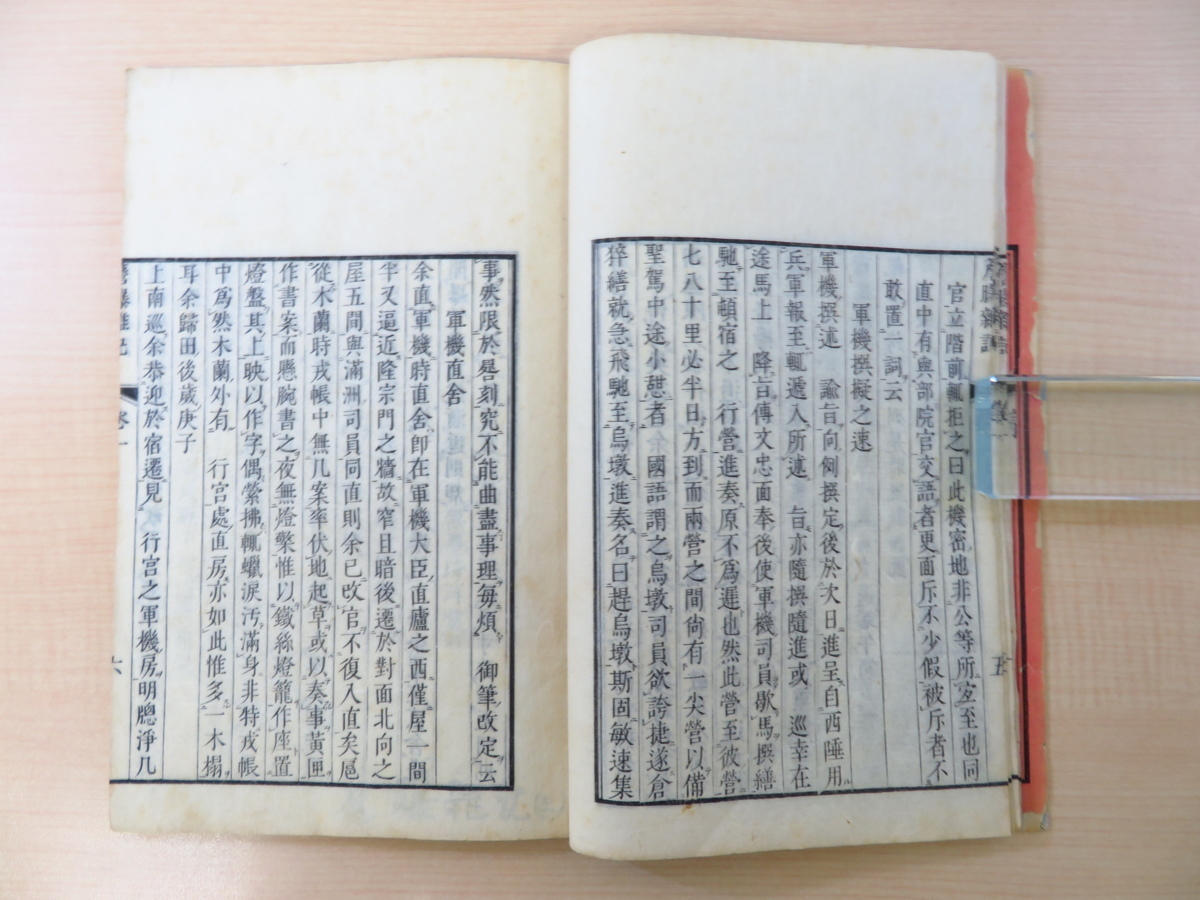 簷曝雜記 卷一 五
官立階前輒拒之曰此機密地非公等所宐至也同
直中有與部院官交語者更面斥不少假被斥者不
敢置一詞云
軍機撰擬之速
軍機撰述 諭旨向例撰定後於次日進呈自西陲用
兵軍報至輒遞入所述 旨亦隨撰隨進或 巡幸在
途馬上 降旨傳文忠面奉後使軍機司員歇馬撰繕
馳至頓宿之 行營進奏原不爲遲也然此營至彼營
七八十里必半日方到而兩營之間尙有一尖營以備
聖駕中途小憇者 國語謂之烏墩司員欲誇捷遂倉
猝繕就急飛馳至烏墩進奏名曰趕烏墩斯固敏速集
事然限於晷刻究不能曲盡事理每煩 御筆改定云
軍機直舍
余直軍機時直舍卽在軍機大臣直廬之西僅屋一間
半又逼近隆宗門之牆故窄且暗後遷於對面北向之
屋五間與滿洲司員同直則余已改官不復入直矣扈
從木蘭時戎帳中無几案率伏地起草或以奏事黃匣
作書案而懸腕書之夜無燈檠惟以鐵絲燈籠作座置
燈盤其上映以作字偶縈拂輒蠟淚汚滿身非特戎帳
中爲然木蘭外有 行宮處直房亦如此惟多一木榻
耳余歸田後歲庚子
上南巡余恭迎於宿遷見 行宮之軍機房明牕淨几
簷曝雜記 卷一 六